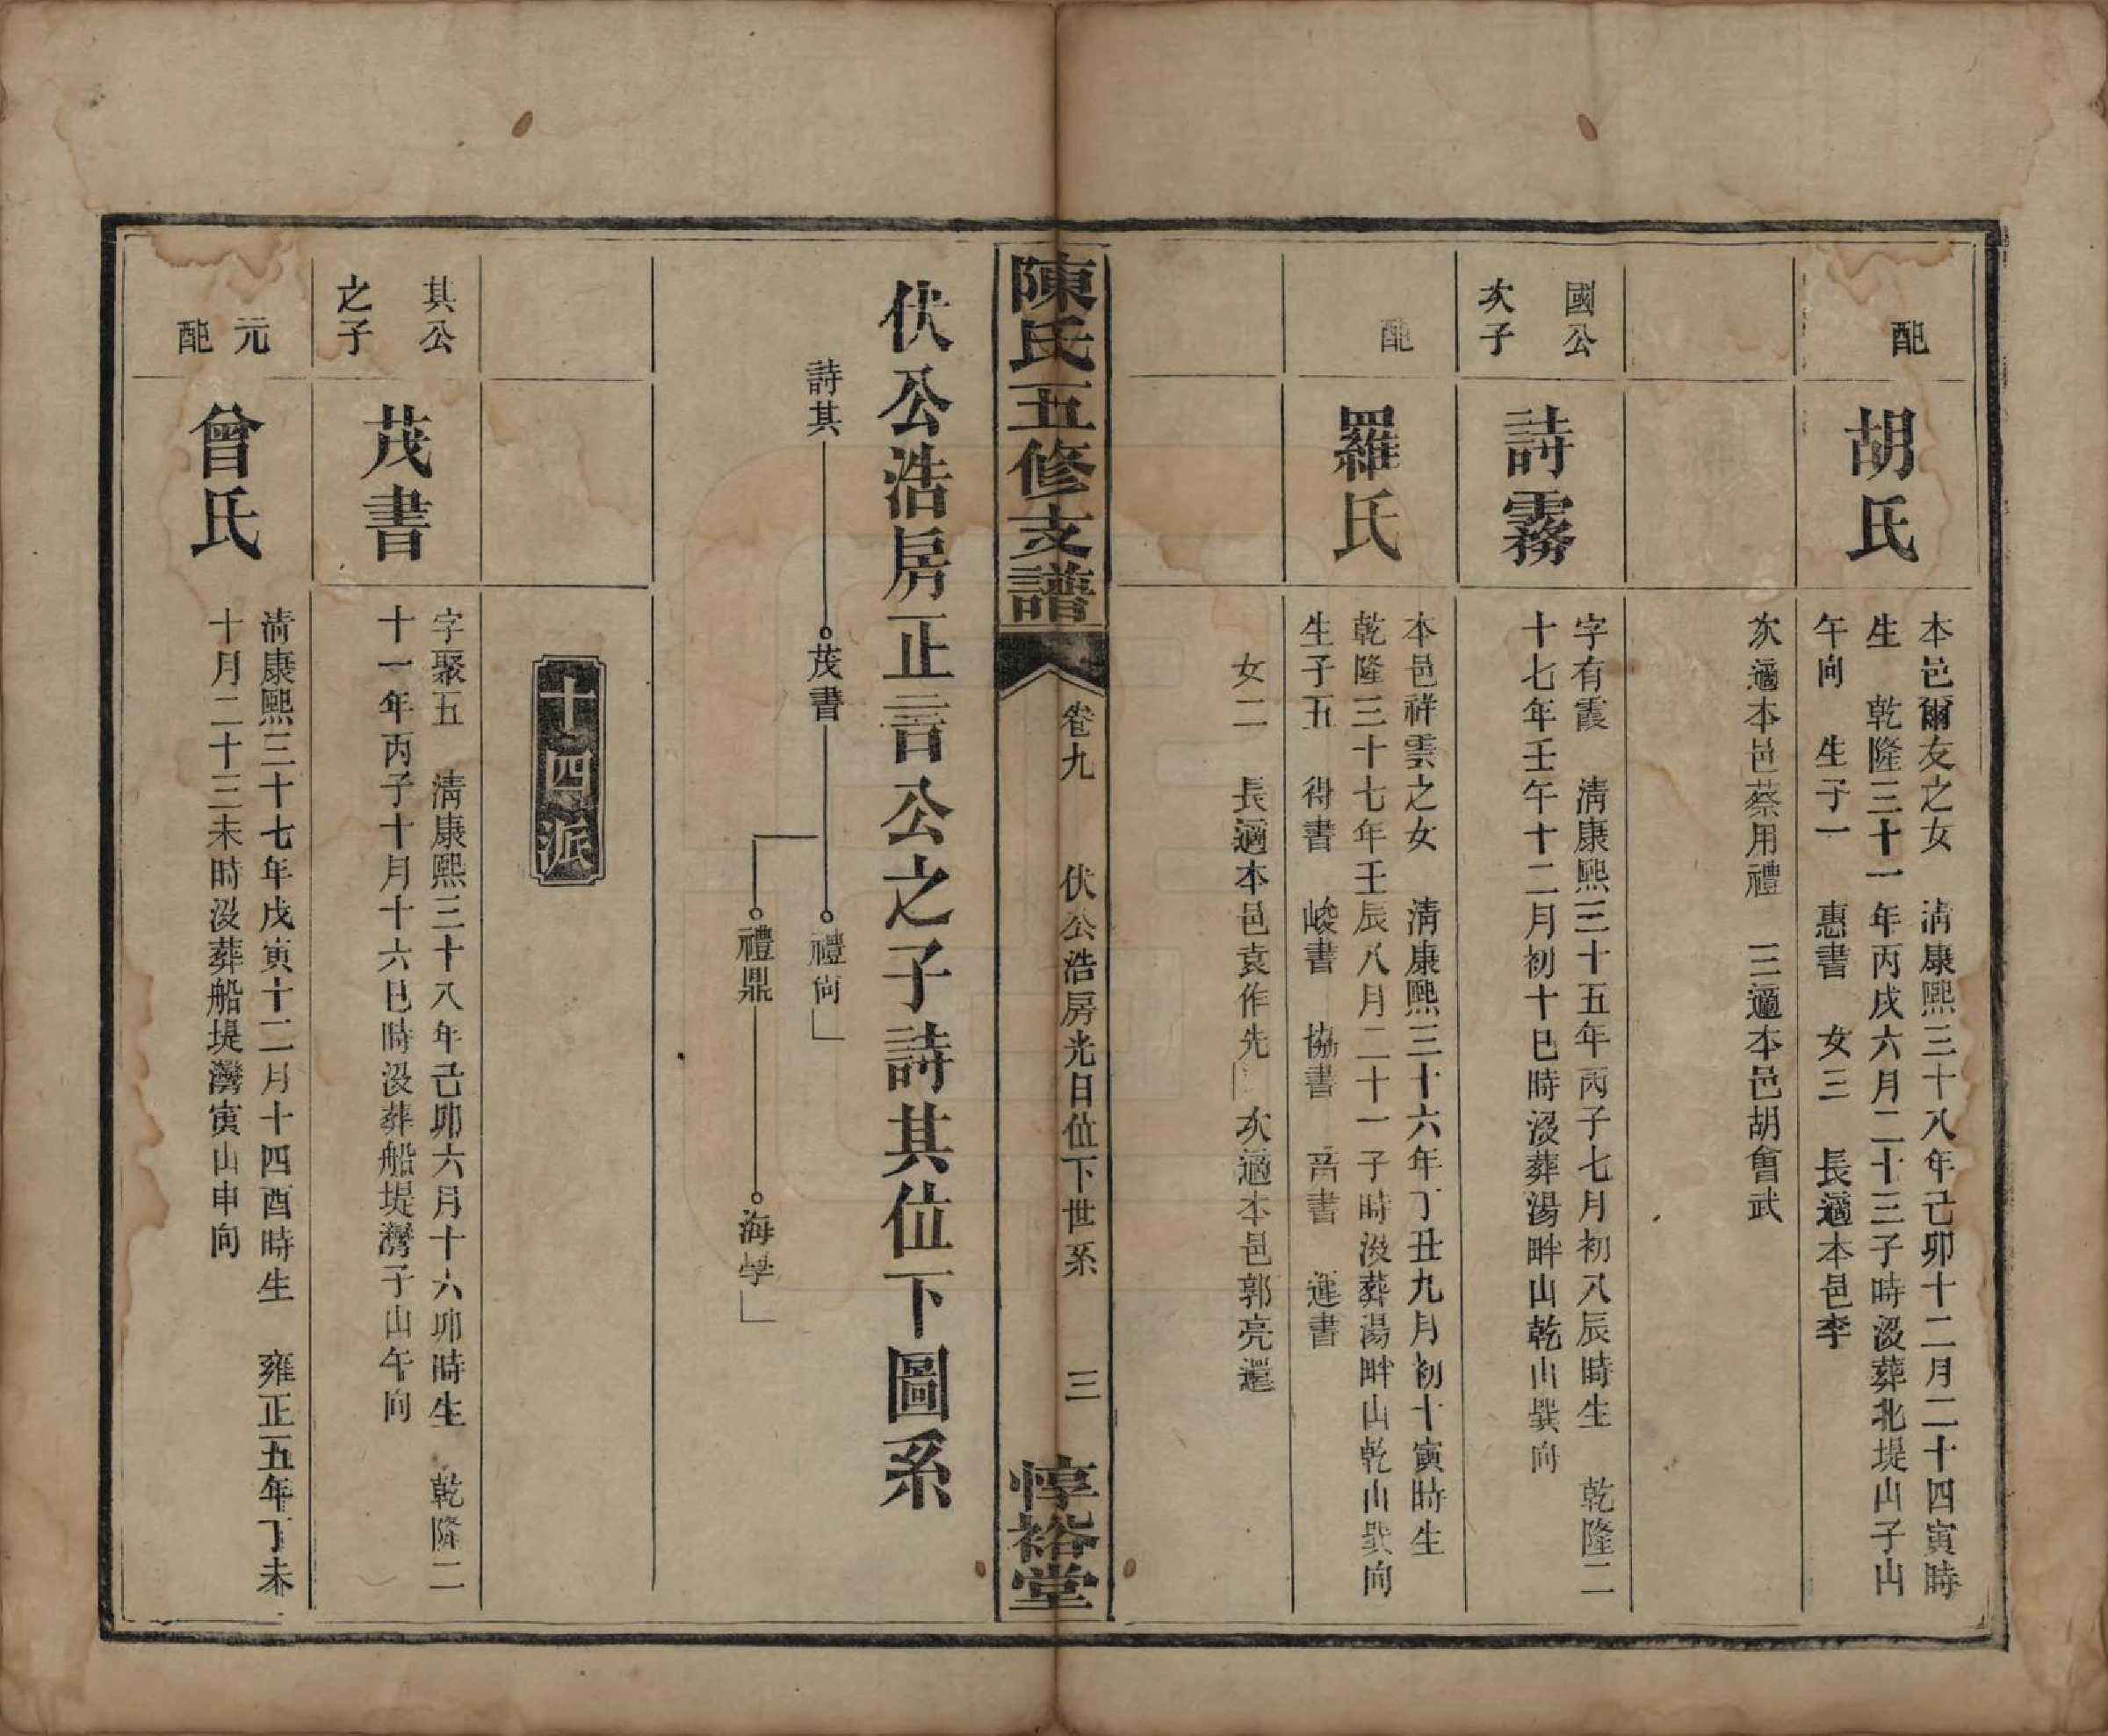 配
胡氏
本邑爾友之女　淸康熙三十八年己卯十二月二十四寅時
生　乾隆三十一年丙戌六月二十三子時没葬北堤山子山
午向　生子一　惠書　女三　長適本邑李
次適本邑蔡用禮　三適本邑胡會武
國公
次子
詩霧
字有霞　淸康熙三十五年丙子七月初八辰時生　乾隆二
十七年壬午十二月初十巳時没葬湯畔山乾山巽向
配
羅氏
本邑祥雲之女　淸康熙三十六年丁丑九月初十寅時生
乾隆三十七年壬辰八月二十一子時没葬湯畔山乾山巽向
生子五　得書　峻書　協書　高書　運書
女二　長適本邑袁作先　次適本邑郭亮還
陳氏五修支譜
卷九　伏公浩房光日位下世系　三
惇裕堂
伏公浩房正言公之子詩其位下圖系
詩其　茂書　禮尙
禮鼎　海學
十四派
其公
之子
茂書
字聚五　淸康熙三十八年己卯六月十六卯時生　乾隆二
十一年丙子十月十六巳時没葬船堤灣子山午向
元
配
曾氏
淸康熙三十七年戊寅十二月十四酉時生　雍正五年丁未
十月二十三未時没葬船堤灣寅山申向